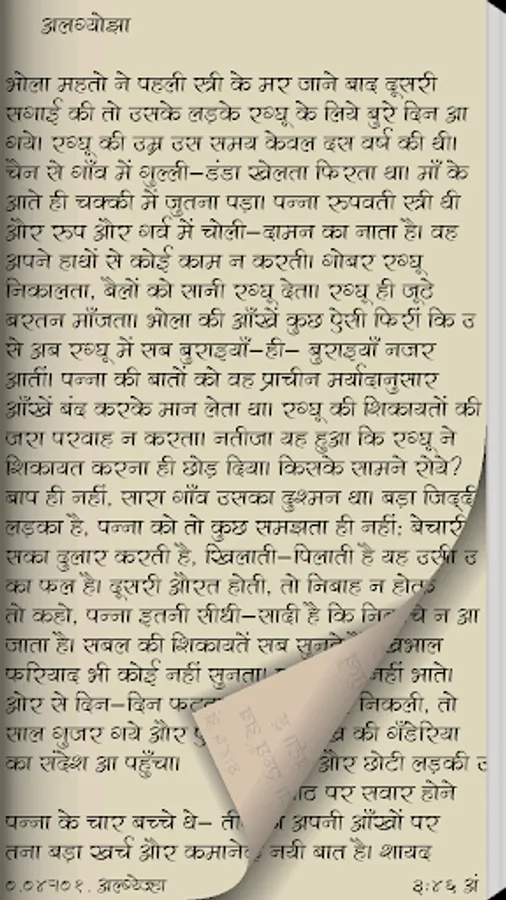 अलग्योझा
भोला महतो ने पहली स्त्री के मर जाने बाद दूसरी
सगाई की तो उसके लड़के रग्घू के लिये बुरे दिन आ
गये। रग्घू की उम्र उस समय केवल दस वर्ष की थी।
चैन से गाँव में गुल्ली-डंडा खेलता फिरता था। माँ के
आते ही चक्की में जुतना पड़ा। पन्ना रुपवती स्त्री थी
और रुप और गर्व में चोली-दामन का नाता है। वह
अपने हाथों से कोई काम न करती। गोबर रग्घू
निकालता, बैलों को सानी रग्घू देता। रग्घू ही जूठे
बरतन माँजता। भोला की आँखें कुछ ऐसी फिरीं कि उ
से अब रग्घू में सब बुराइयाँ-ही- बुराइयाँ नजर
आतीं। पन्ना की बातों को वह प्राचीन मर्यादानुसार
आँखें बंद करके मान लेता था। रग्घू की शिकायतों की
जरा परवाह न करता। नतीजा यह हुआ कि रग्घू ने
शिकायत करना ही छोड़ दिया। किसके सामने रोये?
बाप ही नहीं, सारा गाँव उसका दुश्मन था। बड़ा जिद्दी
लड़का है, पन्ना को तो कुछ समझता ही नहीं: बेचारी
सका दुलार करती है, खिलाती-पिलाती है यह उसी उ
का फल है। दूसरी औरत होती, तो निबाह न होत
तो कहो, पन्ना इतनी सीधी-सादी है कि न आ
जाता है। सबल की शिकायतें सब सुनते
फरियाद भी कोई नहीं सुनता। नहीं भाते।
ओर से दिन-दिन निकली, तो
साल गुजर गये और की गँडेरिया
का संदेश आ पहुँचा। और छोटी लड़की
पर सवार होने
पन्ना के चार बच्चे थे- अपनी आँखों पर
तना बड़ा खर्च और नयी बात है। शायद
०.०४७०१. अलग्योझा ३:४६ अं